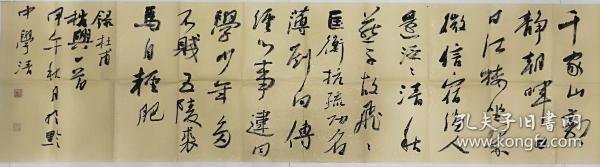 千家山郭
静朝晖日
日江楼坐翠
微信宿渔人
还泛泛清秋
燕子故飞飞
匡衡抗疏功名
薄刘向传
经心事违同
学少年多
不贱五陵裘
马自轻肥
录杜甫
秋兴一首
甲午秋月於黔
中学浩
孔夫子旧书网